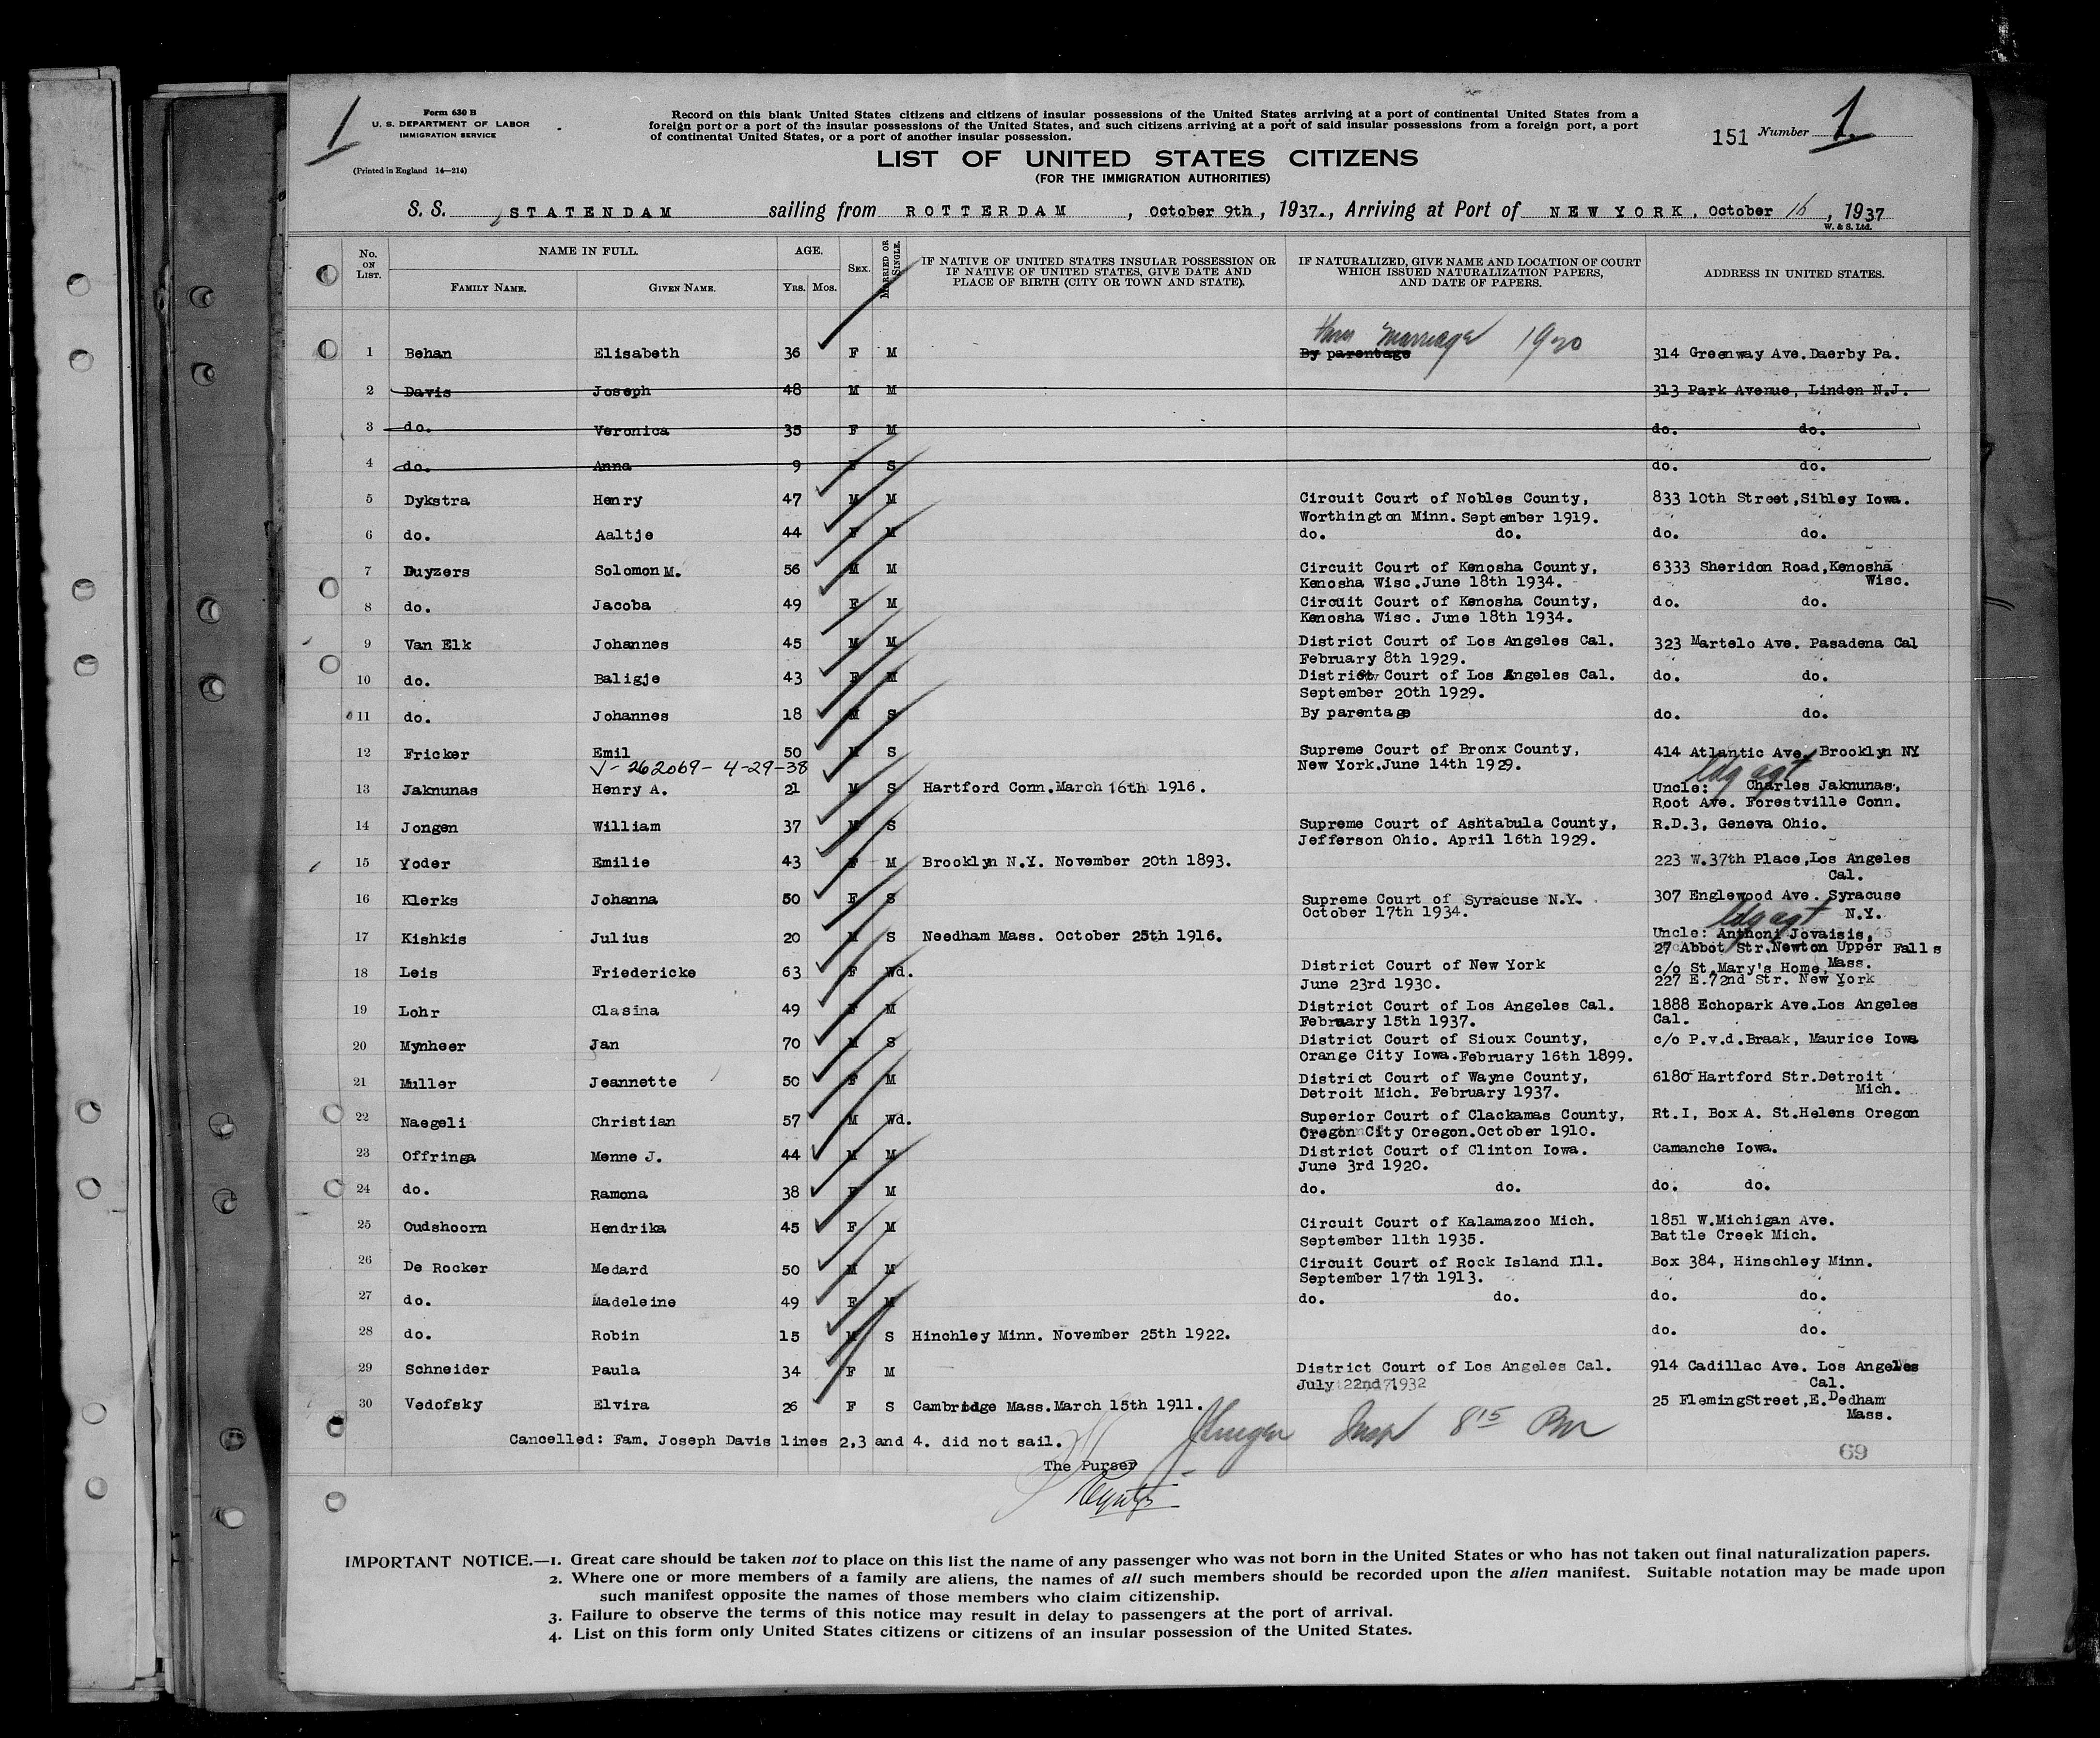 1
Form 630 B
U. S. DEPARTMENT OF LABOR
IMMIGRATION SERVICE
(Printed in England 14—214)
Record on this blank United States citizens and citizens of insular possessions of the United States arriving at a port of continental United States from a
foreign port or a port of the insular possessions of the United States, and such citizens arriving at a port of said insular possessions from a foreign port, a port
of continental United States, or a port of another insular possession.
151 Number 1
LIST OF UNITED STATES CITIZENS
(FOR THE IMMIGRATION AUTHORITIES)
S. S. STATENDAM sailing from ROTTERDAM, October 9th, 1937., Arriving at Port of NEW YORK, October 16, 1937
W. & S. Ltd.
No. ON LIST. NAME IN FULL. AGE. SEX. MARRIED OR SINGLE. IF NATIVE OF UNITED STATES INSULAR POSSESSION OR IF NATIVE OF UNITED STATES, GIVE DATE AND PLACE OF BIRTH (CITY OR TOWN AND STATE). IF NATURALIZED, GIVE NAME AND LOCATION OF COURT WHICH ISSUED NATURALIZATION PAPERS, AND DATE OF PAPERS. ADDRESS IN UNITED STATES.
FAMILY NAME. GIVEN NAME. YRS. MOS.
thru marriage 1920
1 Behan Elisabeth 36 F M By parentage 314 Greenway Ave.Daerby Pa.
2 Davis Joseph 48 M M 313 Park Avenue, Linden N.J.
3 do. Veronica 35 F M do. do.
4 do. Anna 9 F S do. do.
5 Dykstra Henry 47 M M Circuit Court of Nobles County, 833 10th Street,Sibley Iowa.
Worthington Minn. September 1919.
6 do. Aaltje 44 F M do. do. do. do.
7 Duyzers Solomon M. 56 M M Circuit Court of Kenosha County, 6333 Sheridon Road,Kenosha
Kenosha Wisc.June 18th 1934. Wisc.
8 do. Jacoba 49 F M Circuit Court of Kenosha County, do. do.
Kenosha Wisc. June 18th 1934.
9 Van Elk Johannes 45 M M District Court of Los Angeles Cal. 323 Martelo Ave. Pasadena Cal
February 8th 1929.
10 do. Baligje 43 F M District Court of Los Angeles Cal. do. do.
September 20th 1929.
11 do. Johannes 18 M S By parentage do. do.
12 Fricker Emil 50 M S Supreme Court of Bronx County, 414 Atlantic Ave. Brooklyn NY
V-262069-4-29-38 New York.June 14th 1929.
13 Jaknunas Henry A. 21 M S Hartford Conn.March 16th 1916. Uncle: Charles Jaknunas,
Root Ave. Forestville Conn.
14 Jongen William 37 M S Supreme Court of Ashtabula County, R.D.3, Geneva Ohio.
Jefferson Ohio. April 16th 1929.
15 Yoder Emilie 43 F M Brooklyn N.Y. November 20th 1893. 223 W.37th Place,Los Angeles
Cal.
16 Klerks Johanna 50 F S Supreme Court of Syracuse N.Y. 307 Englewood Ave. Syracuse
October 17th 1934. N.Y.
17 Kishkis Julius 20 M S Needham Mass. October 25th 1916. Uncle: Anthoni Jovaisis,
27 Abbot Str.Newton Upper Falls
Mass.
18 Leis Friedericke 63 F Wd. District Court of New York c/o St.Mary's Home,
June 23rd 1930. 227 E.72nd Str. New York
19 Lohr Clasina 49 F M District Court of Los Angeles Cal. 1888 Echopark Ave.Los Angeles
February 15th 1937. Cal.
20 Mynheer Jan 70 M S District Court of Sioux County, c/o P.v.d.Braak, Maurice Iowa
Orange City Iowa.February 16th 1899.
21 Muller Jeannette 50 F M District Court of Wayne County, 6180 Hartford Str.Detroit
Detroit Mich. February 1937. Mich.
22 Naegeli Christian 57 M Wd. Superior Court of Clackamas County, Rt.I, Box A. St.Helens Oregon
Oregon City Oregon.October 1910.
23 Offringa Menne J. 44 M M District Court of Clinton Iowa. Camanche Iowa.
June 3rd 1920.
24 do. Ramona 38 F M do. do. do. do.
25 Oudshoorn Hendrika 45 F M Circuit Court of Kalamazoo Mich. 1851 W.Michigan Ave.
September 11th 1935. Battle Creek Mich.
26 De Rocker Medard 50 M M Circuit Court of Rock Island Ill. Box 384, Hinschley Minn.
September 17th 1913.
27 do. Madeleine 49 F M do. do. do. do.
28 do. Robin 15 M S Hinchley Minn. November 25th 1922. do. do.
29 Schneider Paula 34 F M District Court of Los Angeles Cal. 914 Cadillac Ave. Los Angeles
July 22nd 1932 Cal.
30 Vedofsky Elvira 26 F S Cambridge Mass.March 15th 1911. 25 FlemingStreet,E.Dedham
Mass.
Cancelled: Fam. Joseph Davis lines 2,3 and 4. did not sail.
Insp 8 15 Pm
69
The Purser
IMPORTANT NOTICE.—1. Great care should be taken not to place on this list the name of any passenger who was not born in the United States or who has not taken out final naturalization papers.
2. Where one or more members of a family are aliens, the names of all such members should be recorded upon the alien manifest. Suitable notation may be made upon
such manifest opposite the names of those members who claim citizenship.
3. Failure to observe the terms of this notice may result in delay to passengers at the port of arrival.
4. List on this form only United States citizens or citizens of an insular possession of the United States.